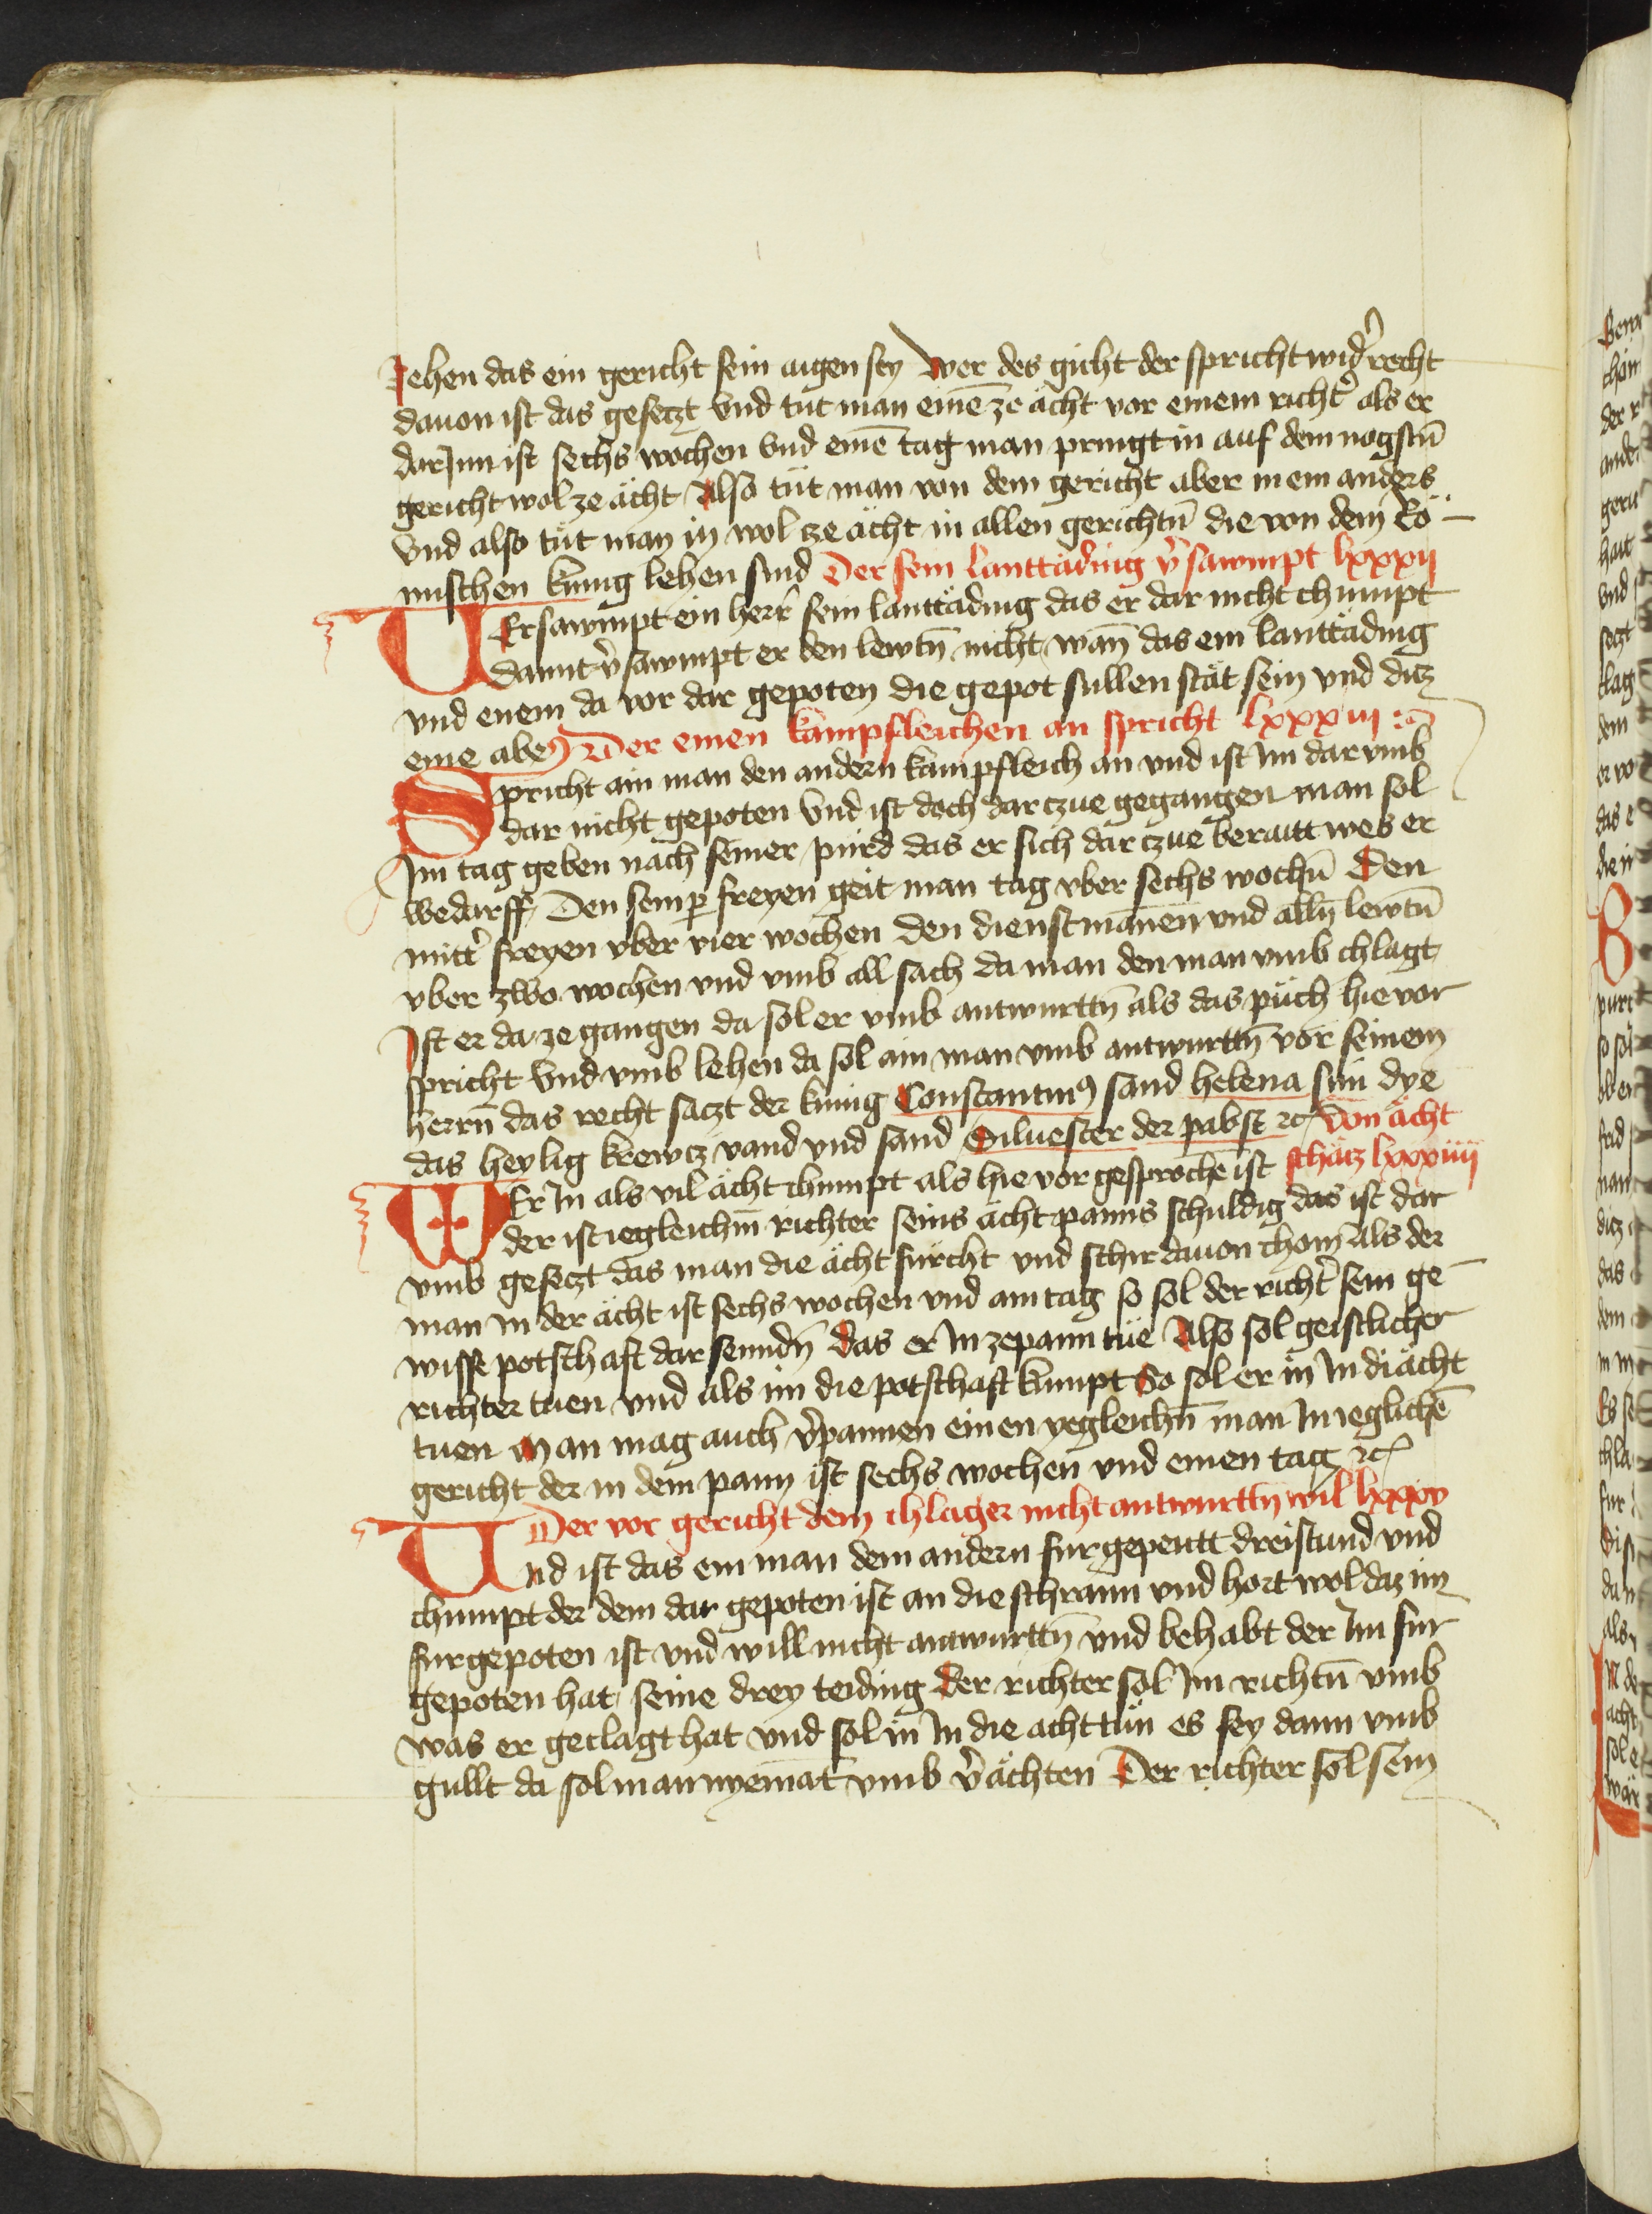 Jehen das ein gericht sein aigen sey Wer des gicht der spricht wid̉ recht
dauon ist das gesetzt Vnd tut man einē ze ächt vor einem richt̉ als er
darJnn ist sechs wochen Vnd einē tag man pringt in auf dem nagstn̄
gericht wol ze ächt Also tüt man von dem gericht aber in ein anders
Vnd also tüt man in wol ze ächt in allen gerichtn̄ die von dem Rö
mischen kunig lehen sind Der sein lanttäding v̉sawmpt lxxxij
VErsawmpt ein herr̄ sein lanttäding das er dar nicht chumpt
damit v̉sawmpt er den lewtn̄ nicht wan̄ das ein lanttäding
vnd enem da vor dar gepoten die gepot sullen stät sein vnd ditz
eine abe Der einen kampfleichen an spricht lxxxiij
Spricht ain man den andern kampfleich an vnd ist Im dar vmb
dar nicht gepoten Vnd ist doch dar czue gegangen man sol
Im tag geben nach seiner pürd das er sich dar czue beraitt wes er
wedarff Den semp̱ freyen geit man tag vber sechs wochn̄ Den
mitt̉ freyen vber vier wochen den dienstmānen vnd alln̄ lewtn̄
vber zwo wochen vnd vmb all sach da man den man vmb chlagt
Ist er da ze gangen da sol er vmb antwurttn̄ als das püch hie vor
spricht Vnd vmb lehen da sol ain man vmb antwurttn̄ vor seinem
herrn̄ das recht saczt der kunig Constantinꝰ sand helena sun dye
das heylig krewcz vand vnd sand Siluester der pabst ꝛc Von ächt
schatz lxxxiiij
WEr In als vil ächt chumpt als hie vor gesprochē ist
der ist iegleichm̄ richter seins ächt panns schuldig das ist dar
vmb gesetzt das man die ächt fürcht vnd schir dauon chom Als der
man in der ächt ist sechs wochen vnd ain tag so sol der richt̉ sein ge
wisse potschaft dar senndn̄ das er In ze pann tüe Also sol geistlicher
richter tuen vnd als im die potschaft kumpt So sol er in In di ächt
tuen Man mag auch v̉pannen einen yegleichn̄ man In ieglichē
gericht der in dem pann ist sechs wochen vnd einen tag ꝛc
Der vor gericht dem chlager nicht antwurttn̄ wil lxxxv
Vnd ist das ein man dem andern furgepeutt dreistund vnd
chumpt der dem dar gepoten ist an die schrann vnd hort wol daz im
furgepoten ist vnd will nicht antwurttn̄ vnd behabt der Im fur
gepoten hat seine drey teiding der richter sol Im richtn̄ vmb
was er geclagt hat vnd sol in In die acht tün es sey dann vmb
gullt da sol man nyemāt vmb v̉ächten Der richter sol sein